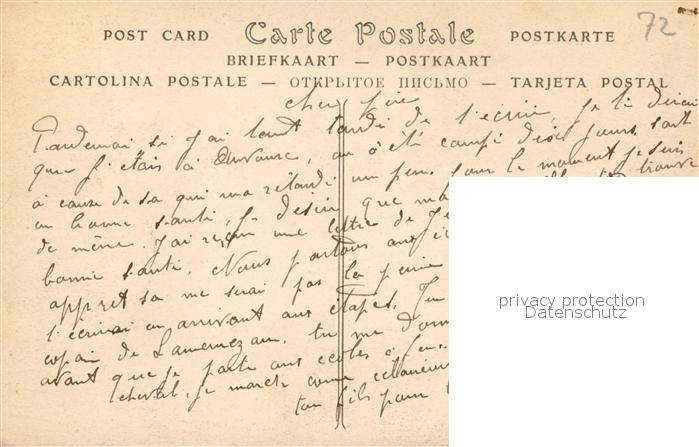 72
POST CARD Carte Postale POSTKARTE
BRIEFKAART — POSTKAART
CARTOLINA POSTALE — ОТКРЫТОЕ ПИСЬМО — TARJETA POSTAL
cher père
Pardonai si j'ai tant tardé de t'écrire, je te dirai
que j'étais à on a été campé deux jours, sant
à cause de sa qui ma retardé un peu. pour le moment je suis
en bonne santé, je désire que ma trouve
de même. j'ai reçu une lettre de
bonne santé. Nous partons aux
appret sa me serai pas la peine
t'écrirai en arrivant aux étapes.
copain de Lannemezan. tu me
avant que je parte aux écoles à feu.
cheval, je marche comme
ton fils pour
privacy protection
Datenschutz